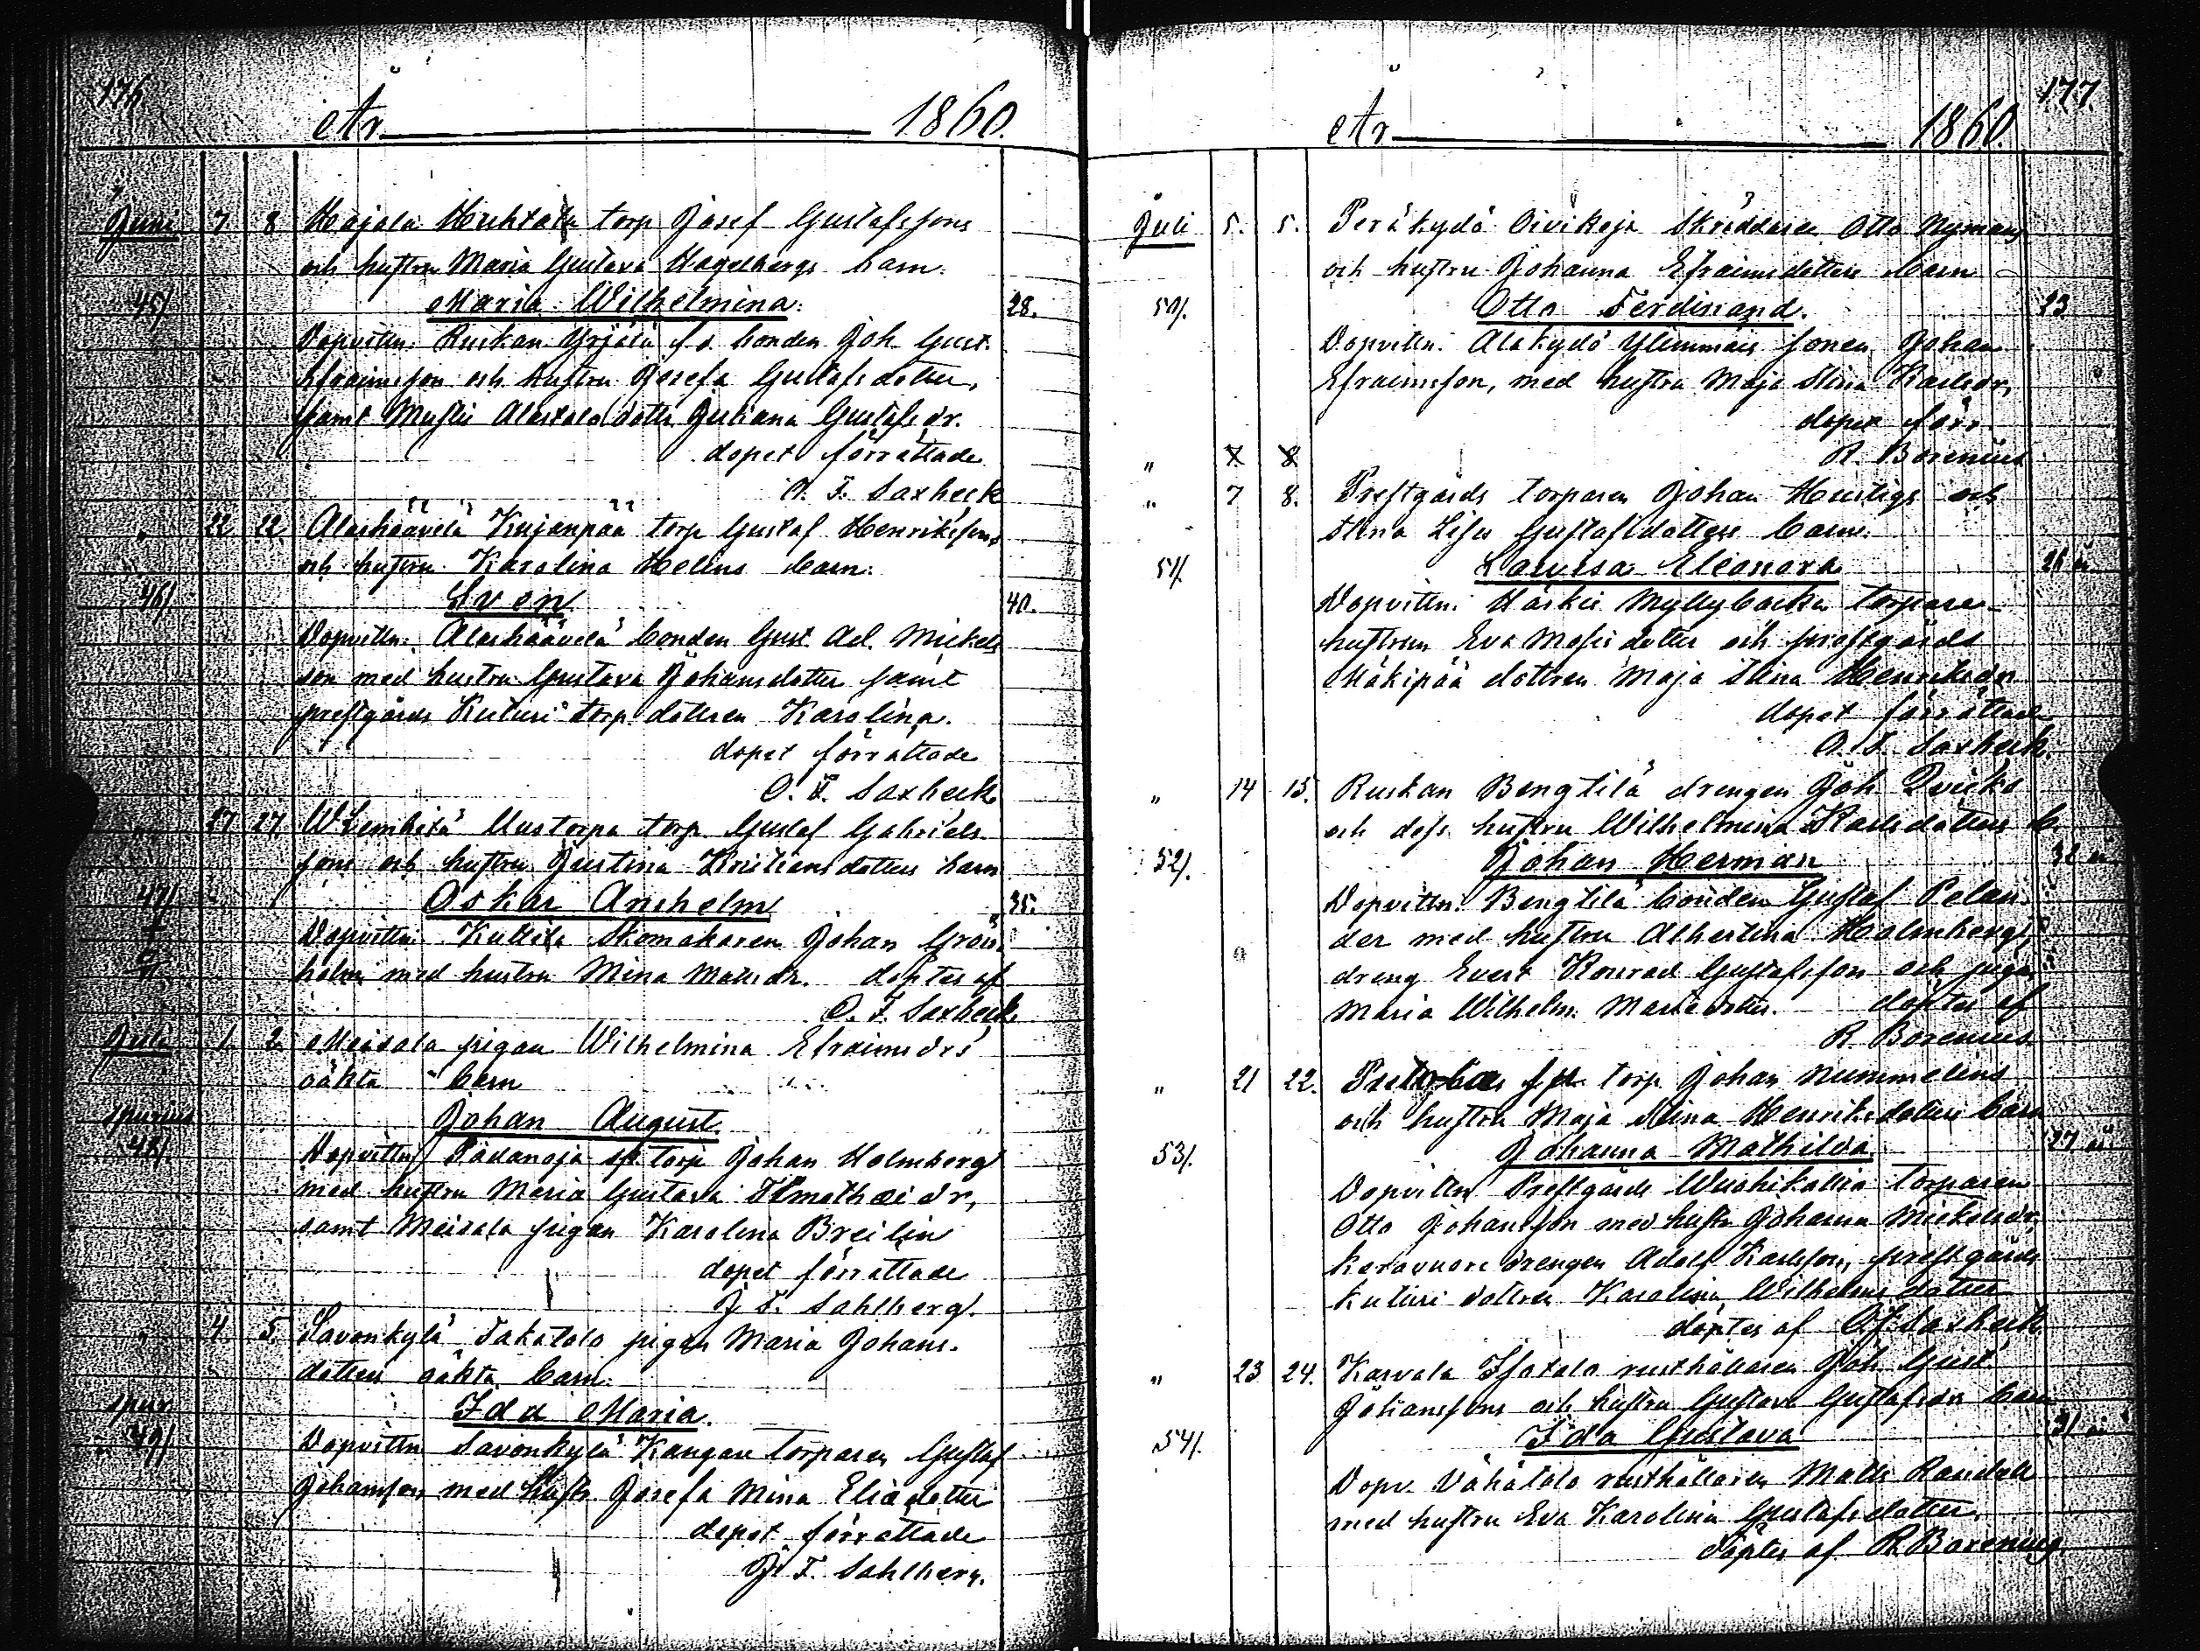 176
År 1860.
Juni 7 8 Hajala Huhtala torp Josef Gustafssons
och hustru Maria Gustava Hagelbergs barn.
45/. Maria Wilhelmina. 28.
Dopvittn. Ruskan Yrjälä fd. bonden Joh. Gust.
Efraimsson och hustru Josefa Gustafsdotter,
samt dotter Juliana Gustafsdr.
dopet förrättade
O. F. Saxbeck
" 22 22 Alashäävelä Kujanpää torp Gustaf Henrikssons
och hustru Karolina Helins barn.
46/. Sven 40.
Dopvittn. Alashäävelä bonden Gust. Ad. Mickels
son med hustru Gustava Johansdotter samt
prestgårds Kuturi torp dottren Karolina.
dopet förrättade
O. F. Saxbeck
27 27 Uustorpa torp Gustaf Gabriels
sons och hustru Justina Kristiansdotters barn
47/. Oskar Anshelm 35.
Dopvittn. Kukkila Skomakaren Johan Grön
holm med hustru Mina Matsdr. döptes af
O. F. Saxbeck
Juli 1 2 Meisala pigan Wilhelmina Efraimsdrs
oäkta barn
spurius
48/. Johan August.
Dopvittn. torp Johan Holmberg
med hustru Maria Gustava dr,
samt Meisala pigan Karolina Breilin
dopet förrättade
J. F. Sahlberg.
" 4 5. Savonkylä Takatalo pigan Maria Johans
dotters oäkta barn.
spur.
49/. Ida Maria.
Dopvittn Savonkylä Kangan torparen Gustaf
Johansson med hustr. Josefa Mina Eliædotter
dopet förrättade
J. F. Sahlberg.
177.
År 1860.
Juli 5. 5. Peräkydö Oivikoja Skräddaren Otto Nymans
och hustru Johanna Efraimsdotters barn
50/. Otto Ferdinand. 23
Dopvittn. Alakydö sonen Johan
Efraimsson, med hustru Maja Stina Karlsdr,
dopet förr.
R. Borenius
" 7 8
" 7 8. Prestgårds torparen Johan Hurtigs och
Stina Lisa Gustafsdotters barn.
51/. Lovisa Eleonora 26 å.
Dopvittn. Härkis Myllybacka torpare
hustrun Eva dotter och prestgårds
Mäkipää dottren Maja Stina Henriksdr
dopet förrättade
O. F. Saxbeck.
" 14 15. Ruskan Bengtilä drengen Joh. Qvicks
och dess hustru Wilhelmina Karlsdotters b.
52/. Johan Herman 32 å.
Dopvittn. Bengtilä bonden Gustaf Pelan
der med hustru Albertina Holmberg,
dreng Evert Konrad Gustafsson och pigan
Maria Wilhelm. dotter. döptes af
R. Borenius
" 21 22. torp Johan Nummelins
och hustru Maja Stina Henriksdotters barn
53/. Johanna Mathilda 27 år
Dopvittn Prestgårds torparen
Otto Johansson med hustr. Johanna Mickelsdr.
drengen Adolf Karlsson, prestgårds
Kuturi dottren Karolina Wilhelms dotter
döptes af O.F. Saxbeck
" 23 24. Karvala Isotalo rusthållaren Joh. Gust.
Johanssons och hustru Gustava Gustafsdrs barn
54/. Ida Gustava 31 å
Dopv. Vähätalo rusthållaren Matts Randell
med hustru Eva Karolina Gustafsdotter.
döptes af R. Borenius.